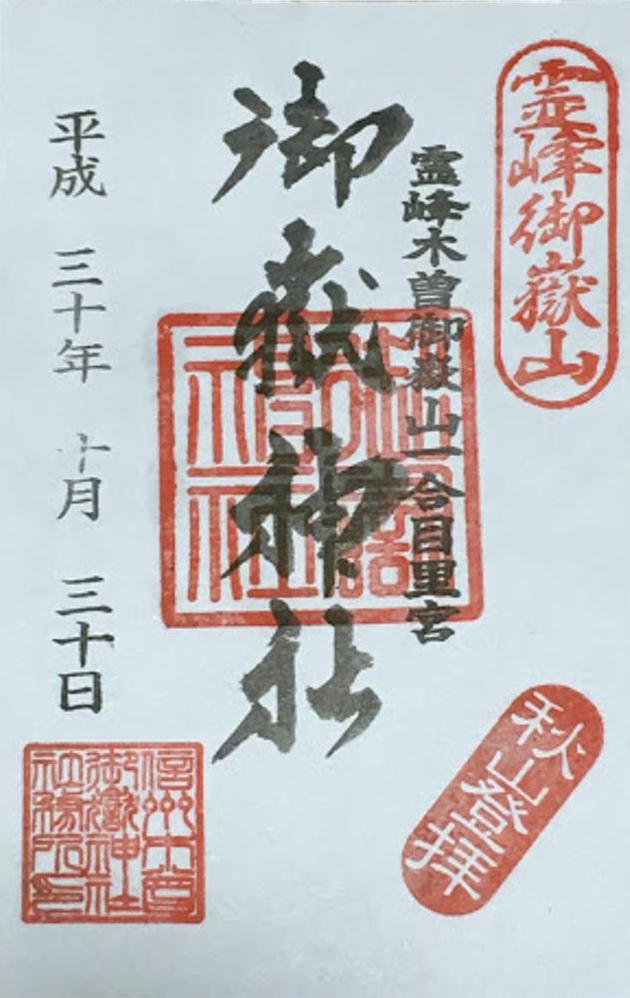 霊峰御嶽山
霊峰木曽御嶽山一合目里宮
御嶽神社
平成 三十年 十月 三十日
秋山登拝
信州木曽
御嶽神社
社務所印